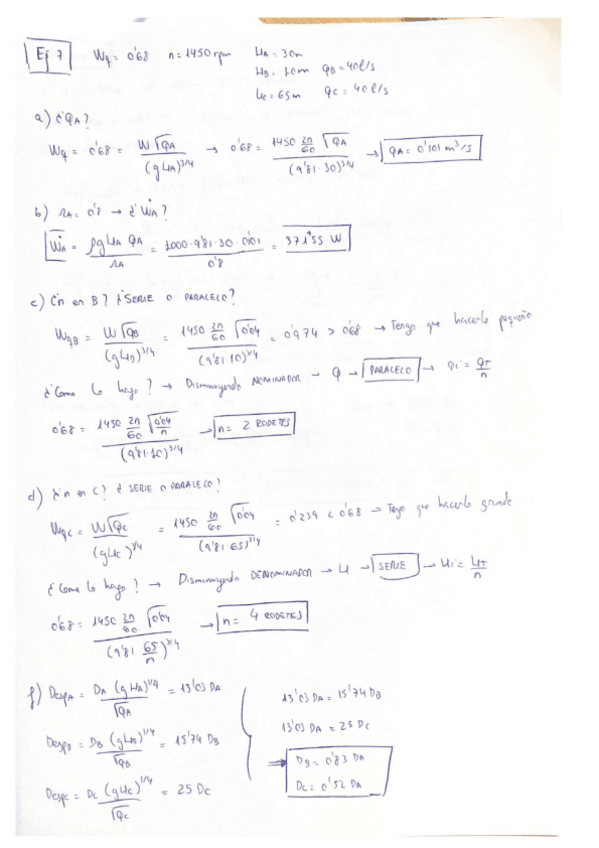 Ej 7 Wq = 0'68 n = 1450 rpm HA = 30m
HB = 10m QB = 40 l/s
HC = 65m QC = 40 l/s
a) ¿QA?
Wq = 0'68 = W√QA / (gHA)^3/4 → 0'68 = 1450 2π/60 √QA / (9'81·30)^3/4 → QA = 0'101 m³/s
b) ηA = 0'8 → ¿ẆA?
ẆA = ρgHA QA / ηA = 1000·9'81·30·0'101 / 0'8 = 37155 W
c) ¿n en B? ¿SERIE O PARALELO?
WqB = W√QB / (gHB)^3/4 = 1450 2π/60 √0'04 / (9'81·10)^3/4 = 0'974 > 0'68 → Tengo que hacerlo pequeño
¿Como lo hago? → Disminuyendo NOMINADOR → Q → PARALELO → Qi = QT/n
0'68 = 1450 2π/60 √0'04/n / (9'81·10)^3/4 → n = 2 RODETES
d) ¿n en C? ¿SERIE O PARALELO?
WqC = W√QC / (gHC)^3/4 = 1450 2π/60 √0'04 / (9'81·65)^3/4 = 0'239 < 0'68 → Tengo que hacerlo grande
¿Como lo hago? → Disminuyendo DENOMINADOR → H → SERIE → Hi = HT/n
0'68 = 1450 2π/60 √0'04 / (9'81 65/n)^3/4 → n = 4 RODETES
f) DespA = DA (gHA)^1/4 / √QA = 13'03 DA
DespB = DB (gHB)^1/4 / √QB = 15'74 DB
DespC = DC (gHC)^1/4 / √QC = 25 DC
13'03 DA = 15'74 DB
13'03 DA = 25 DC
⇒ DB = 0'83 DA
DC = 0'52 DA